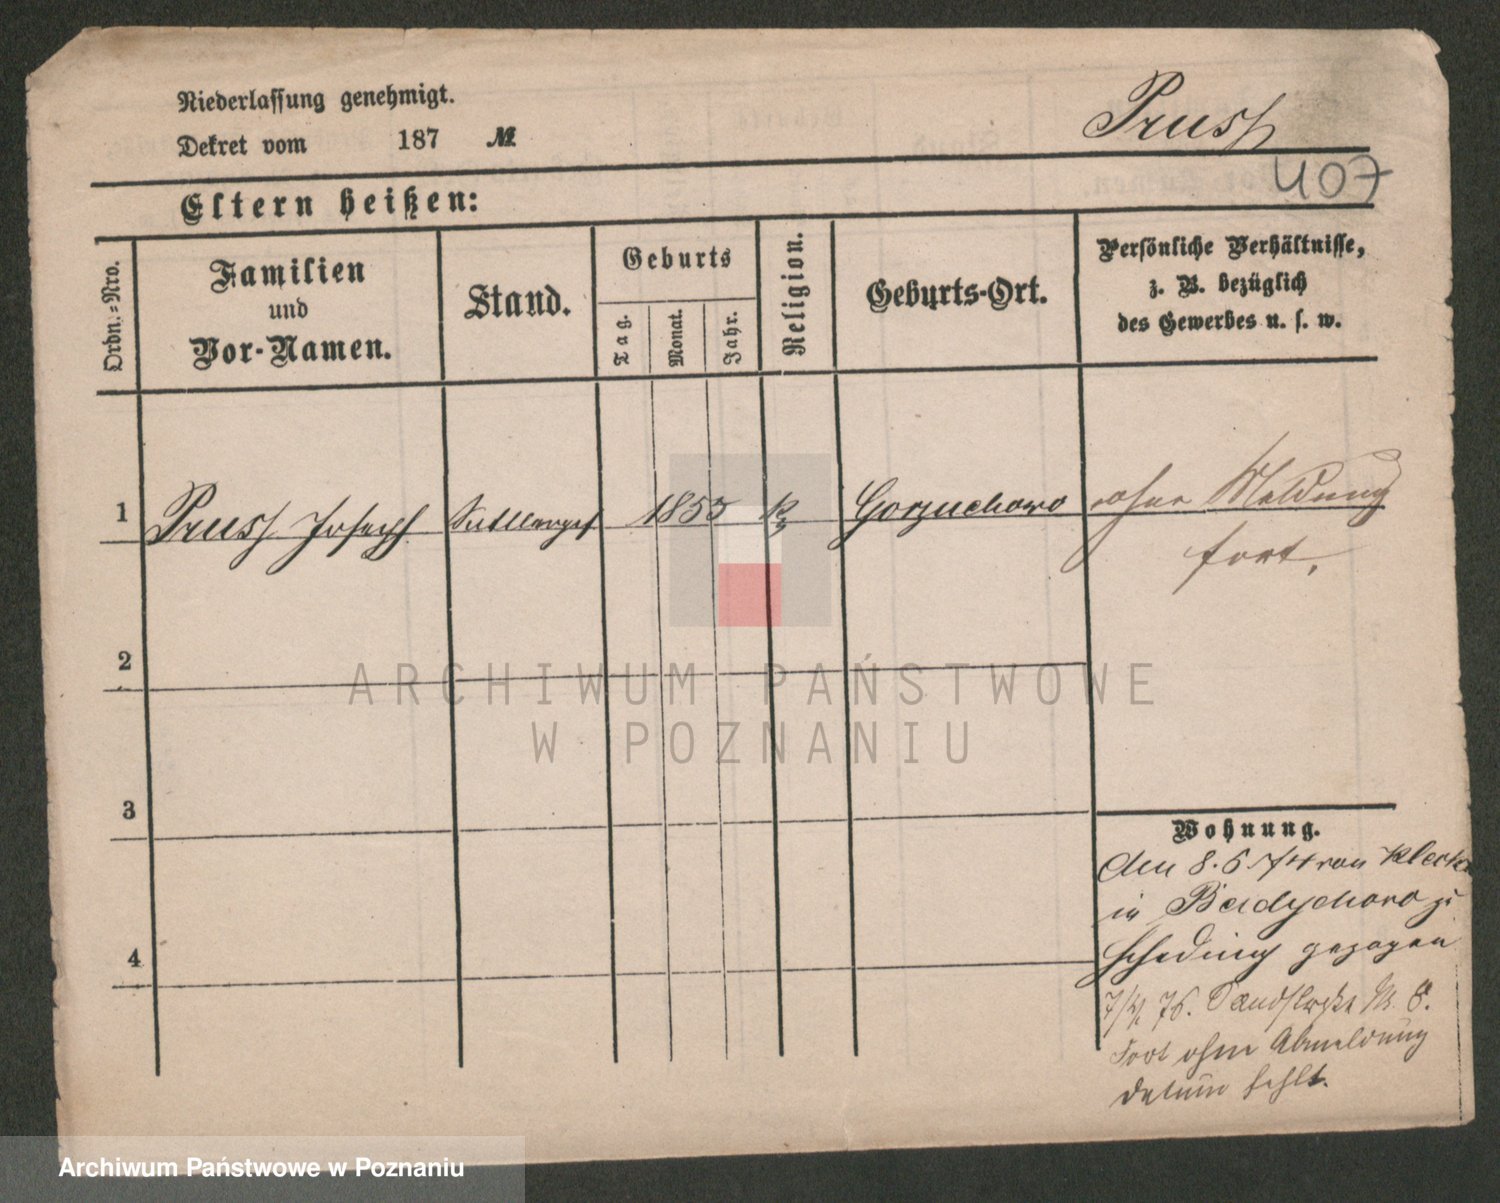 Niederlassung genehmigt.
Dekret vom 187 №
Pruss
407
Eltern heißen:
Ordn.-Nro.
Familien
und
Vor-Namen.
Stand.
Geburts
Tag.
Monat.
Jahr.
Religion.
Geburts-Ort.
Persönliche Verhältnisse,
z. B. bezüglich
des Gewerbes u. s. w.
1 Pruss Joseph 1855 k Gorzuchowo ohne Meldung
fort.
2
3
4
Wohnung.
den 8.6.74 von
in zu
gezogen
76. 8.
Fort ohne Abmeldung
datum fehlt.
ARCHIWUM PAŃSTWOWE
W POZNANIU
Archiwum Państwowe w Poznaniu